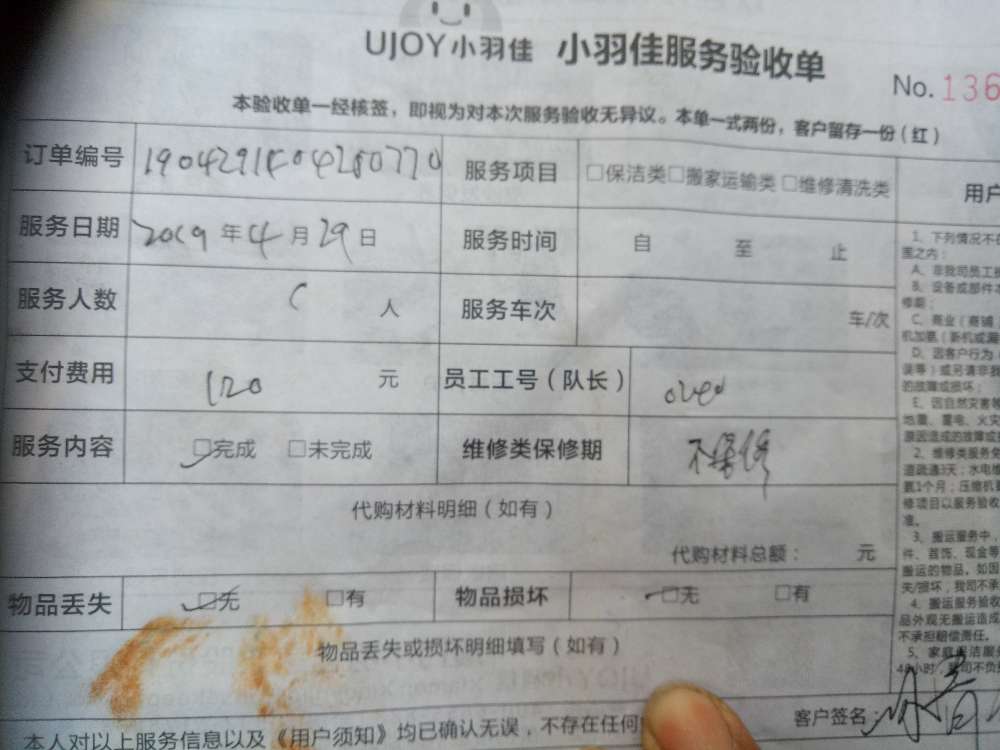 UJOY小羽佳 小羽佳服务验收单
No. 136
本验收单一经核签，即视为对本次服务验收无异议。本单一式两份，客户留存一份（红）
订单编号 服务项目 □保洁类□搬家运输类□维修清洗类 用户
服务日期 2019年4月29日 服务时间 自 至 止
服务人数 人 服务车次 车/次
支付费用 120 元 员工工号（队长）
服务内容 □完成 □未完成 维修类保修期 不保修
代购材料明细（如有）
代购材料总额： 元
物品丢失 □无 □有 物品损坏 □无 □有
物品丢失或损坏明细填写（如有）
客户签名：
本人对以上服务信息以及《用户须知》均已确认无误，不存在任何
1、下列情况不
围之内：
A、非我司员工
B、设备或部件
修期；
C、商业（商铺
机加氨（新机或漏
D、因客户行为
误等）或另请非我
的故障或损坏；
E、因自然灾害等
地震、雷电、火灾
原因造成的故障或
2、维修类服务免
道疏通3天；水电维
氨1个月；压缩机
修项目以服务验收
准。
3、搬运服务中，
件、首饰、现金等
搬运的物品。如因
失/损坏，我司不承
4、搬运服务验收
品外观无搬运造成
不承担赔偿责任。
5、家庭保洁服